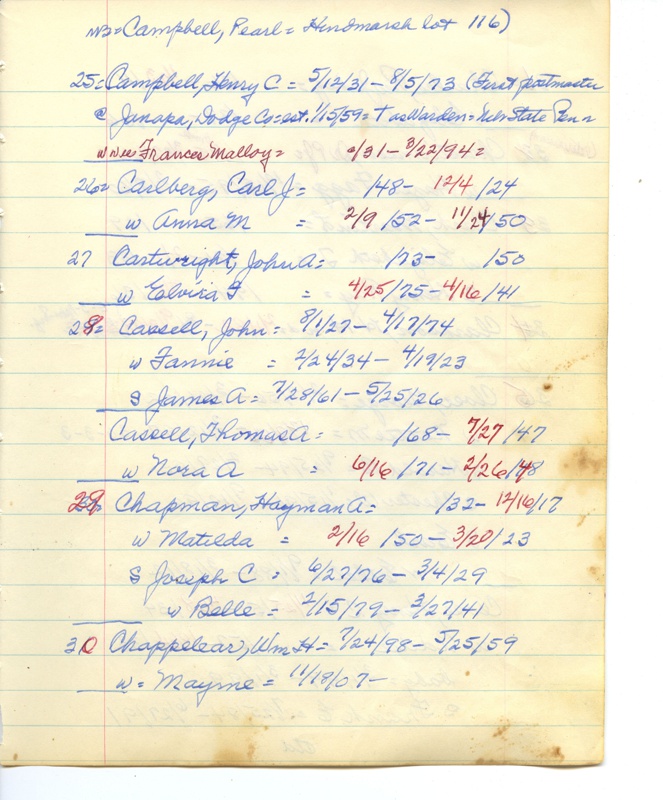 NB= Campbell, Pearl = Hindmarsh lot 116)
25= Campbell, Henry C = 5/12/31 - 8/5/73 (First postmaster
@ Janapa, Dodge Co=est. 1/15/59= † as Warden= Nebr State Pen =
w nee Frances Malloy = /31 - 3/22/94 =
26= Carlberg, Carl J = /48 - 12/4 /24
w Anna M = 2/9 /52 - 11/24/50
27 Cartwright, John A: /73 - /50
w Elvira = 4/25/75 - 4/16/41
28= Cassell, John = 8/1/27 - 4/17/74
w Fannie = 2/24/34 - 4/19/23
S James A = 7/28/61 - 5/25/26
Cassell, Thomas A: /68 - 7/27 /47
w Nora A = 6/16 /71 - 2/26/48
29 Chapman, Hayman A = /32 - 12/16/17
w Matilda = 2/16 /50 - 3/20/23
S Joseph C = 6/27/76 - 3/4/29
w Belle = 2/15/79 - 3/27/41
30 Chappelear, Wm H = 7/24/98 - 5/25/59
w = Mayme = 11/18/07 -